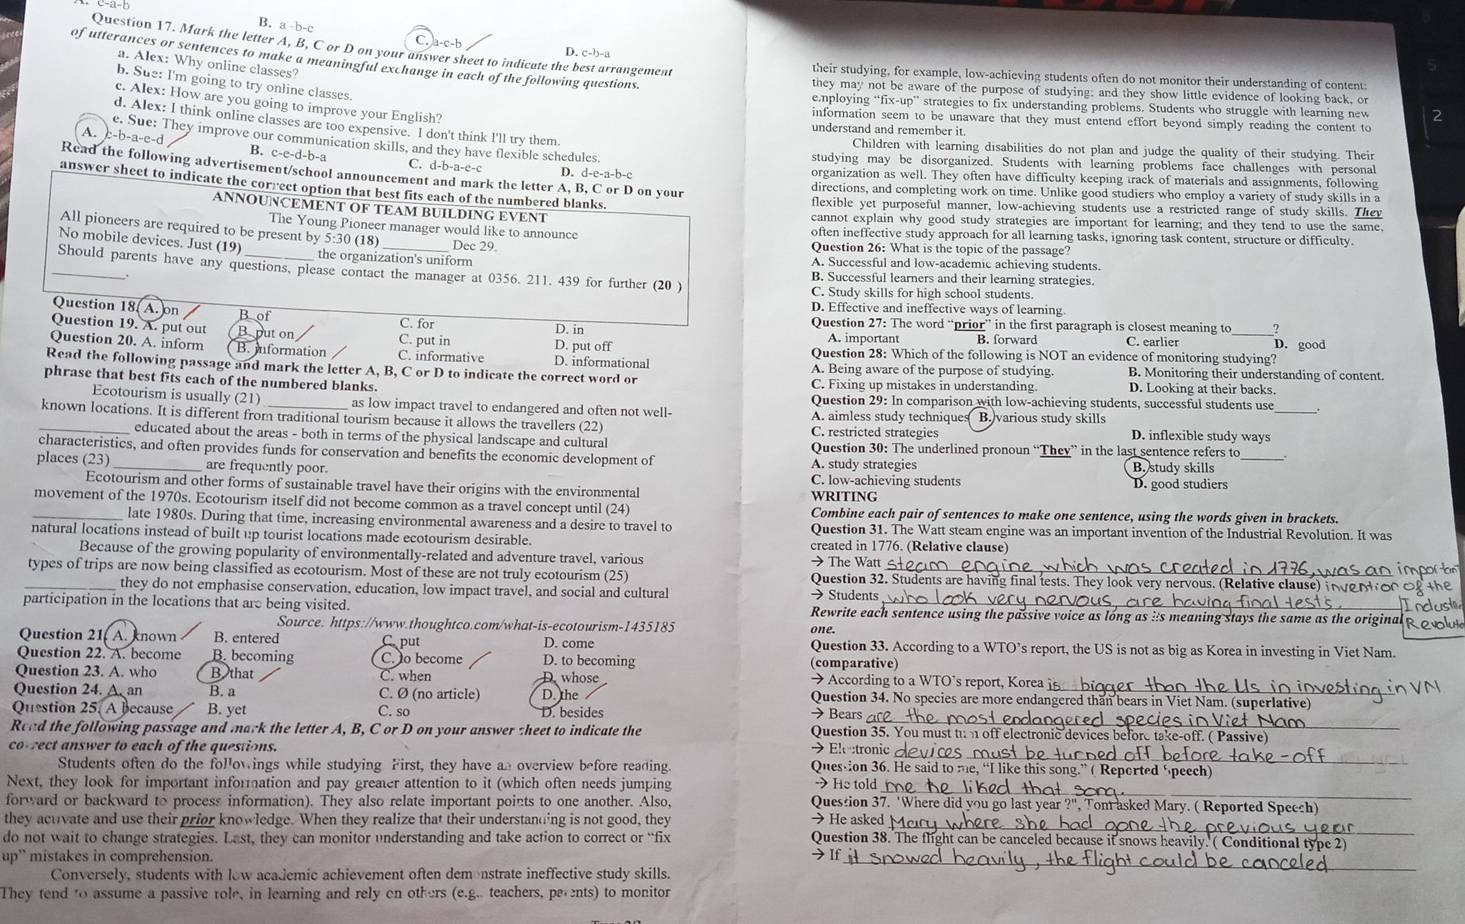 A. c-a-b
B. a -b-c
C. a-c-b
D. c-b-a
Question 17. Mark the letter A, B, C or D on your answer sheet to indicate the best arrangement
of utterances or sentences to make a meaningful exchange in each of the following questions.
a. Alex: Why online classes?
b. Sue: I'm going to try online classes.
c. Alex: How are you going to improve your English?
d. Alex: I think online classes are too expensive. I don't think I'll try them.
e. Sue: They improve our communication skills, and they have flexible schedules.
A. c-b-a-e-d B. c-e-d-b-a C. d-b-a-e-c D. d-e-a-b-c
Read the following advertisement/school announcement and mark the letter A, B, C or D on your
answer sheet to indicate the correct option that best fits each of the numbered blanks.
ANNOUNCEMENT OF TEAM BUILDING EVENT
The Young Pioneer manager would like to announce
All pioneers are required to be present by 5:30 (18) ______ Dec 29.
No mobile devices. Just (19) ______ the organization's uniform
Should parents have any questions, please contact the manager at 0356. 211. 439 for further (20 )
______.
Question 18. A. on B. of C. for D. in
Question 19. A. put out B. put on C. put in D. put off
Question 20. A. inform B. information C. informative D. informational
Read the following passage and mark the letter A, B, C or D to indicate the correct word or
phrase that best fits each of the numbered blanks.
Ecotourism is usually (21) ______ as low impact travel to endangered and often not well-
known locations. It is different from traditional tourism because it allows the travellers (22)
______ educated about the areas - both in terms of the physical landscape and cultural
characteristics, and often provides funds for conservation and benefits the economic development of
places (23) ______ are frequently poor.
Ecotourism and other forms of sustainable travel have their origins with the environmental
movement of the 1970s. Ecotourism itself did not become common as a travel concept until (24)
______ late 1980s. During that time, increasing environmental awareness and a desire to travel to
natural locations instead of built up tourist locations made ecotourism desirable.
Because of the growing popularity of environmentally-related and adventure travel, various
types of trips are now being classified as ecotourism. Most of these are not truly ecotourism (25)
______ they do not emphasise conservation, education, low impact travel, and social and cultural
participation in the locations that are being visited.
Source: https://www.thoughtco.com/what-is-ecotourism-1435185
Question 21. A. known B. entered C. put D. come
Question 22. A. become B. becoming C. to become D. to becoming
Question 23. A. who B. that C. when D. whose
Question 24. A. an B. a C. Ø (no article) D. the
Question 25. A because B. yet C. so D. besides
Read the following passage and mark the letter A, B, C or D on your answer sheet to indicate the
correct answer to each of the questions.
Students often do the followings while studying. First, they have an overview before reading.
Next, they look for important information and pay greater attention to it (which often needs jumping
forward or backward to process information). They also relate important points to one another. Also,
they activate and use their prior knowledge. When they realize that their understanding is not good, they
do not wait to change strategies. Last, they can monitor understanding and take action to correct or “fix
up” mistakes in comprehension.
Conversely, students with low academic achievement often demonstrate ineffective study skills.
They tend to assume a passive role, in learning and rely on others (e.g., teachers, parents) to monitor
their studying, for example, low-achieving students often do not monitor their understanding of content;
they may not be aware of the purpose of studying; and they show little evidence of looking back, or
employing “fix-up” strategies to fix understanding problems. Students who struggle with learning new
information seem to be unaware that they must entend effort beyond simply reading the content to
understand and remember it.
Children with learning disabilities do not plan and judge the quality of their studying. Their
studying may be disorganized. Students with learning problems face challenges with personal
organization as well. They often have difficulty keeping track of materials and assignments, following
directions, and completing work on time. Unlike good studiers who employ a variety of study skills in a
flexible yet purposeful manner, low-achieving students use a restricted range of study skills. They
cannot explain why good study strategies are important for learning; and they tend to use the same,
often ineffective study approach for all learning tasks, ignoring task content, structure or difficulty.
Question 26: What is the topic of the passage?
A. Successful and low-academic achieving students.
B. Successful learners and their learning strategies.
C. Study skills for high school students.
D. Effective and ineffective ways of learning.
Question 27: The word “prior” in the first paragraph is closest meaning to______?
A. important B. forward C. earlier D. good
Question 28: Which of the following is NOT an evidence of monitoring studying?
A. Being aware of the purpose of studying. B. Monitoring their understanding of content.
C. Fixing up mistakes in understanding. D. Looking at their backs.
Question 29: In comparison with low-achieving students, successful students use______.
A. aimless study techniques B. various study skills
C. restricted strategies D. inflexible study ways
Question 30: The underlined pronoun “They” in the last sentence refers to______.
A. study strategies B. study skills
C. low-achieving students D. good studiers
WRITING
Combine each pair of sentences to make one sentence, using the words given in brackets.
Question 31. The Watt steam engine was an important invention of the Industrial Revolution. It was
created in 1776. (Relative clause)
→ The Watt steam engine, which was created in 1776, was an important
Question 32. Students are having final tests. They look very nervous. (Relative clause) invention of the
→ Students, who look very nervous, are having final tests. Industrial
Rewrite each sentence using the passive voice as long as its meaning stays the same as the original Revolution
one.
Question 33. According to a WTO’s report, the US is not as big as Korea in investing in Viet Nam.
(comparative)
→ According to a WTO’s report, Korea is bigger than the Us in investing in VN
Question 34. No species are more endangered than bears in Viet Nam. (superlative)
→ Bears are the most endangered species in Viet Nam
Question 35. You must turn off electronic devices before take-off. ( Passive)
→ Electronic devices must be turned off before take-off
Question 36. He said to me, “I like this song.” ( Reported Speech)
→ He told me he liked that song.
Question 37. "Where did you go last year ?", Tom asked Mary. ( Reported Speech)
→ He asked Mary where she had gone the previous year
Question 38. The flight can be canceled because it snows heavily. ( Conditional type 2)
→ If it snowed heavily, the flight could be canceled
2